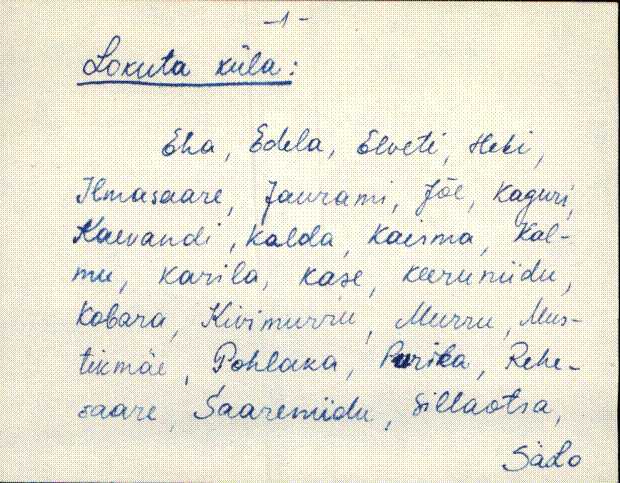 -1-
Lokuta küla:
Eha, Edela, Elveti, Heki,
Ilmasaare, Jaurami, Jõe, Kaguri,
Kaevandi, Kalda, Kaisma, Kal-
mu, Karila, Kase, Keeruniidu,
Kobara, Kivimurru, Murru, Mus-
tikmäe, Pohlaka, Purika, Rehe-
saare, Saareniidu, Sillaotsa,